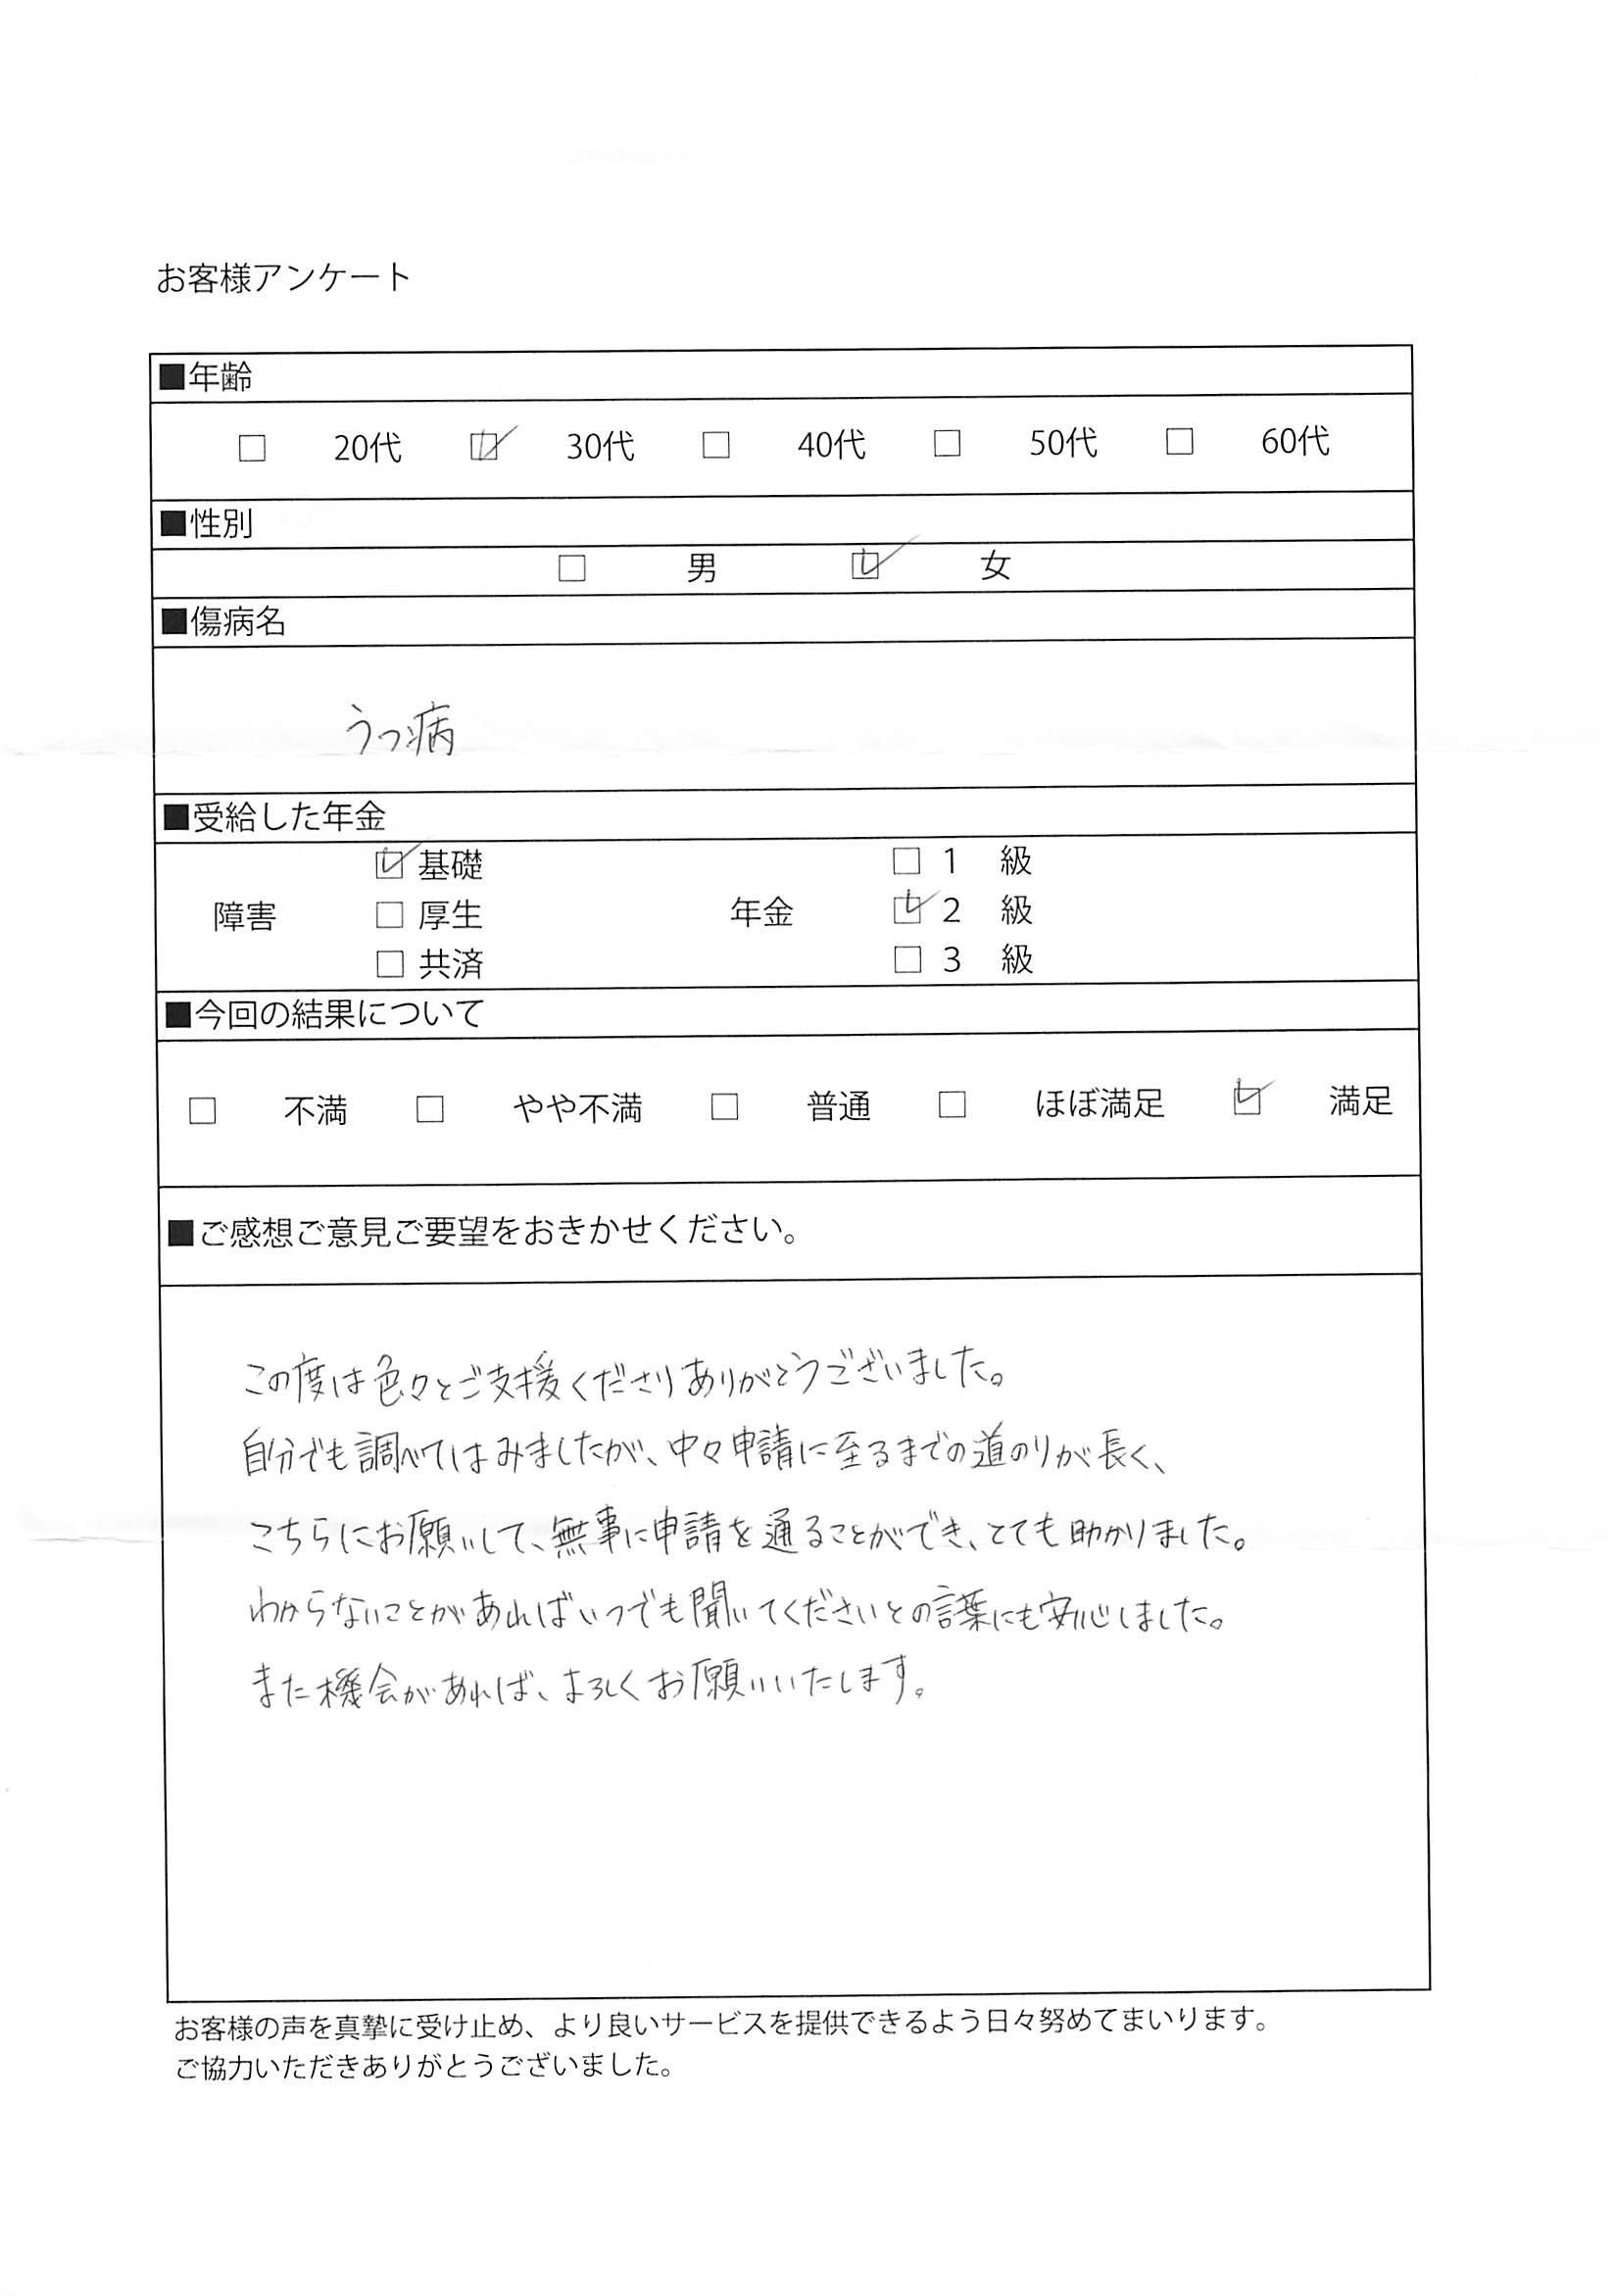 お客様アンケート
■年齢
□ 20代 ☑ 30代 □ 40代 □ 50代 □ 60代
■性別
□ 男 ☑ 女
■傷病名
うつ病
■受給した年金
☑ 基礎 □ 1 級
障害 □ 厚生 年金 ☑ 2 級
□ 共済 □ 3 級
■今回の結果について
□ 不満 □ やや不満 □ 普通 □ ほぼ満足 ☑ 満足
■ご感想ご意見ご要望をおきかせください。
この度は色々とご支援くださりありがとうございました。
自分でも調べてはみましたが、中々申請に至るまでの道のりが長く、
こちらにお願いして、無事に申請を通ることができ、とても助かりました。
わからないことがあればいつでも聞いてくださいとの言葉にも安心しました。
また機会があれば、よろしくお願いいたします。
お客様の声を真摯に受け止め、より良いサービスを提供できるよう日々努めてまいります。
ご協力いただきありがとうございました。